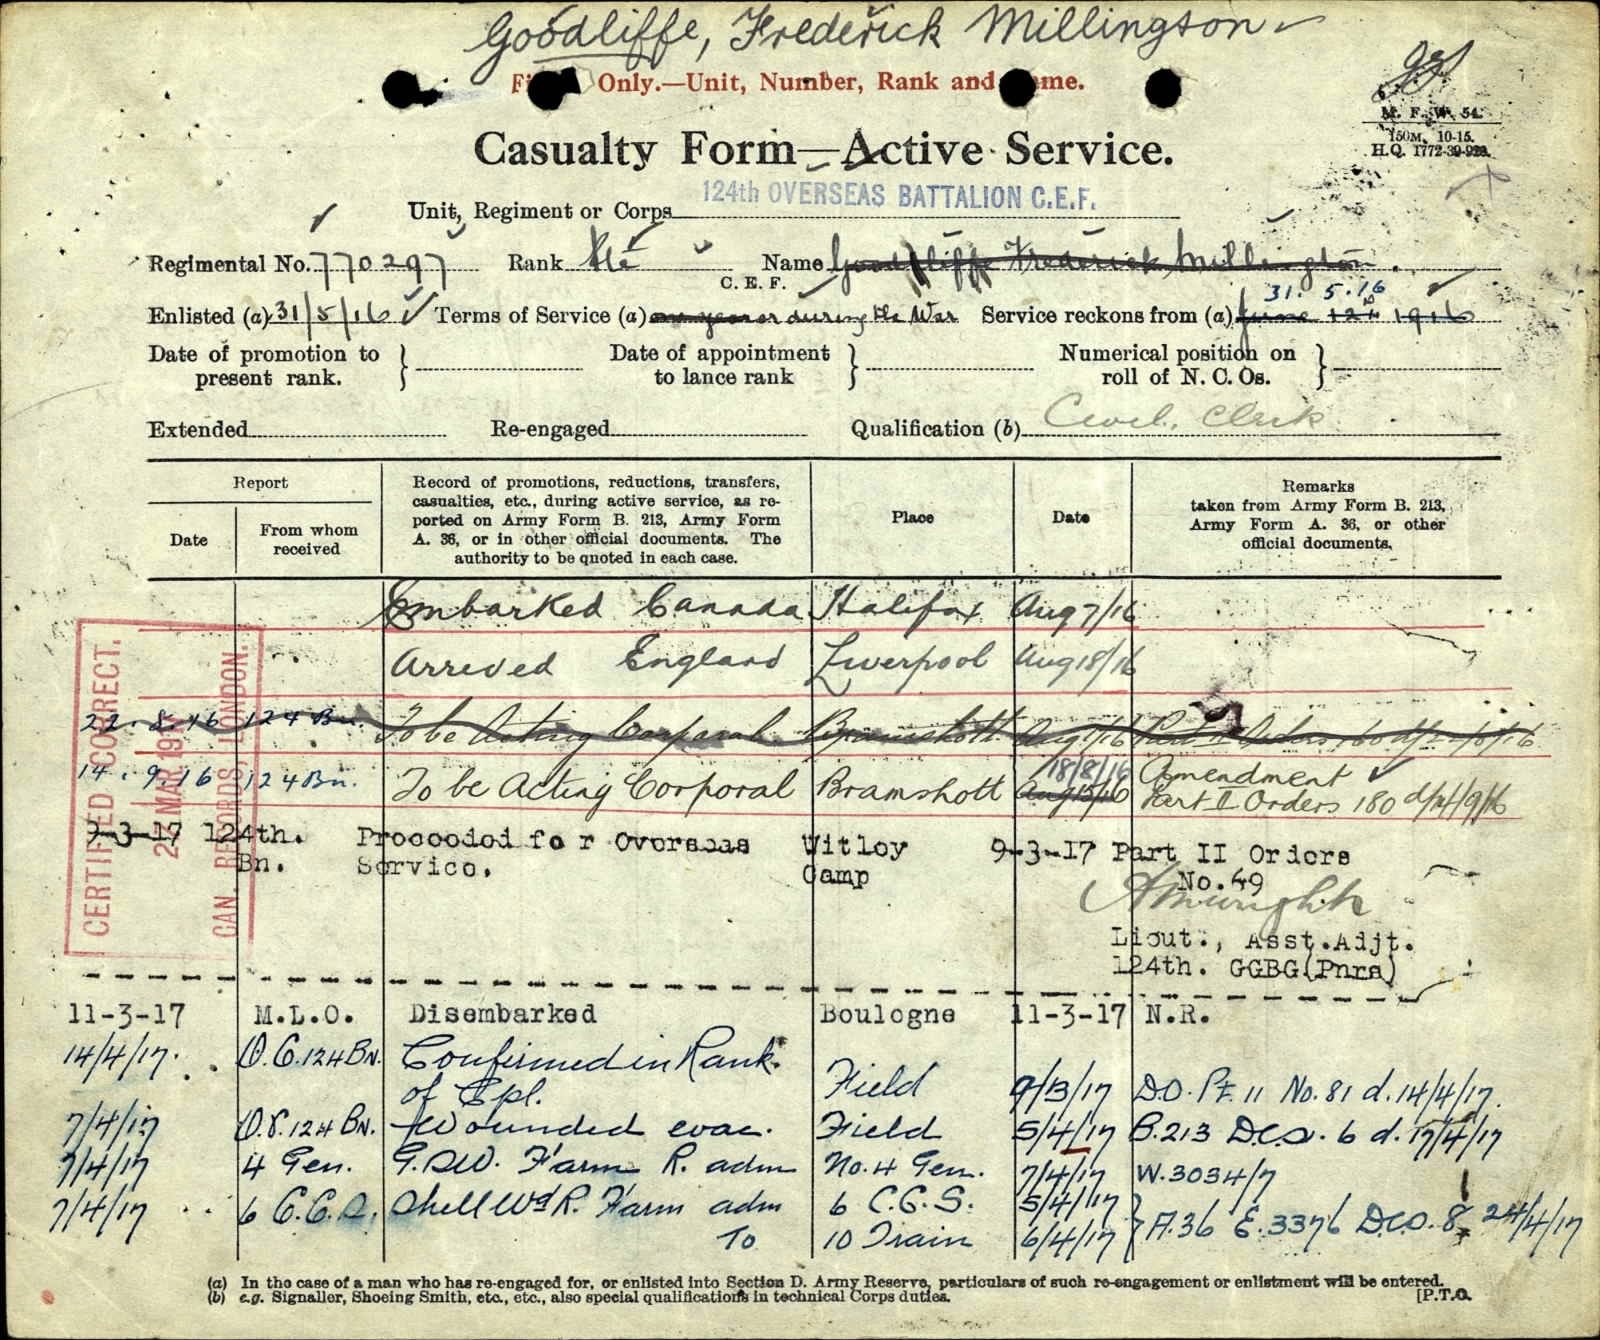 Goodliffe, Frederick Millingson
Only.—Unit, Number, Rank and
M. F. W. 54.
150M, 10-15.
H.Q. 1772-39-920.
Casualty Form—Active Service.
Unit, Regiment or Corps 124th OVERSEAS BATTALION C.E.F.
Regimental No. 770297 Rank Pte Name Goodliffe Frederick Millington
C. E. F.
31. 5. 16
Enlisted (a) 31/5/16 Terms of Service (a) during the War Service reckons from (a) June 12th 1916
Date of promotion to present rank. } Date of appointment to lance rank } Numerical position on roll of N. C. Os. }
Extended Re-engaged Qualification (b) Civil. Clerk
Report
Date
From whom received
Record of promotions, reductions, transfers,
casualties, etc., during active service, as re-
ported on Army Form B. 213, Army Form
A. 36, or in other official documents. The
authority to be quoted in each case.
Place
Date
Remarks
taken from Army Form B. 213,
Army Form A. 36, or other
official documents.
Embarked Canada Halifax Aug 7/16
Arrived England Liverpool Aug 18/16
22.8.16 124 Bn. To be Acting Corporal Bramshott
18/8/16 Amendment
14.9.16 124 Bn. To be Acting Corporal Bramshott Aug 13/16 Part II Orders 180 d/14/9/16
CERTIFIED CORRECT.
MAR 191
CAN. RECORDS, LONDON.
9-3-17 124th. Proceeded for Overseas Witley 9-3-17 Part II Orders
Bn. Service. Camp No. 49
Lieut., Asst.Adjt.
124th. GGBG(Pnrs)
11-3-17 M.L.O. Disembarked Boulogne 11-3-17 N.R.
14/4/17. O.C. 124 Bn. Confirmed in Rank
of Cpl. Field 9/3/17 D.O. Pt. 11 No. 81 d. 14/4/17.
7/4/17 O.C. 124 Bn. Wounded evac. Field 5/4/17 B.213 D.C.S. 6 d. 17/4/17
7/4/17 4 Gen. G.S.W. F'arm R. adm No. 4 Gen. 7/4/17 W.3034/7
7/4/17 6 C.C.S. Shell Wd R. F'arm adm 6 C.C.S. 5/4/17
To 10 Train 6/4/17 } A.36 E.3376 D.C.S. 8 24/4/17
(a) In the case of a man who has re-engaged for, or enlisted into Section D. Army Reserve, particulars of such re-engagement or enlistment will be entered.
(b) e.g. Signaller, Shoeing Smith, etc., etc., also special qualifications in technical Corps duties. [P.T.O.